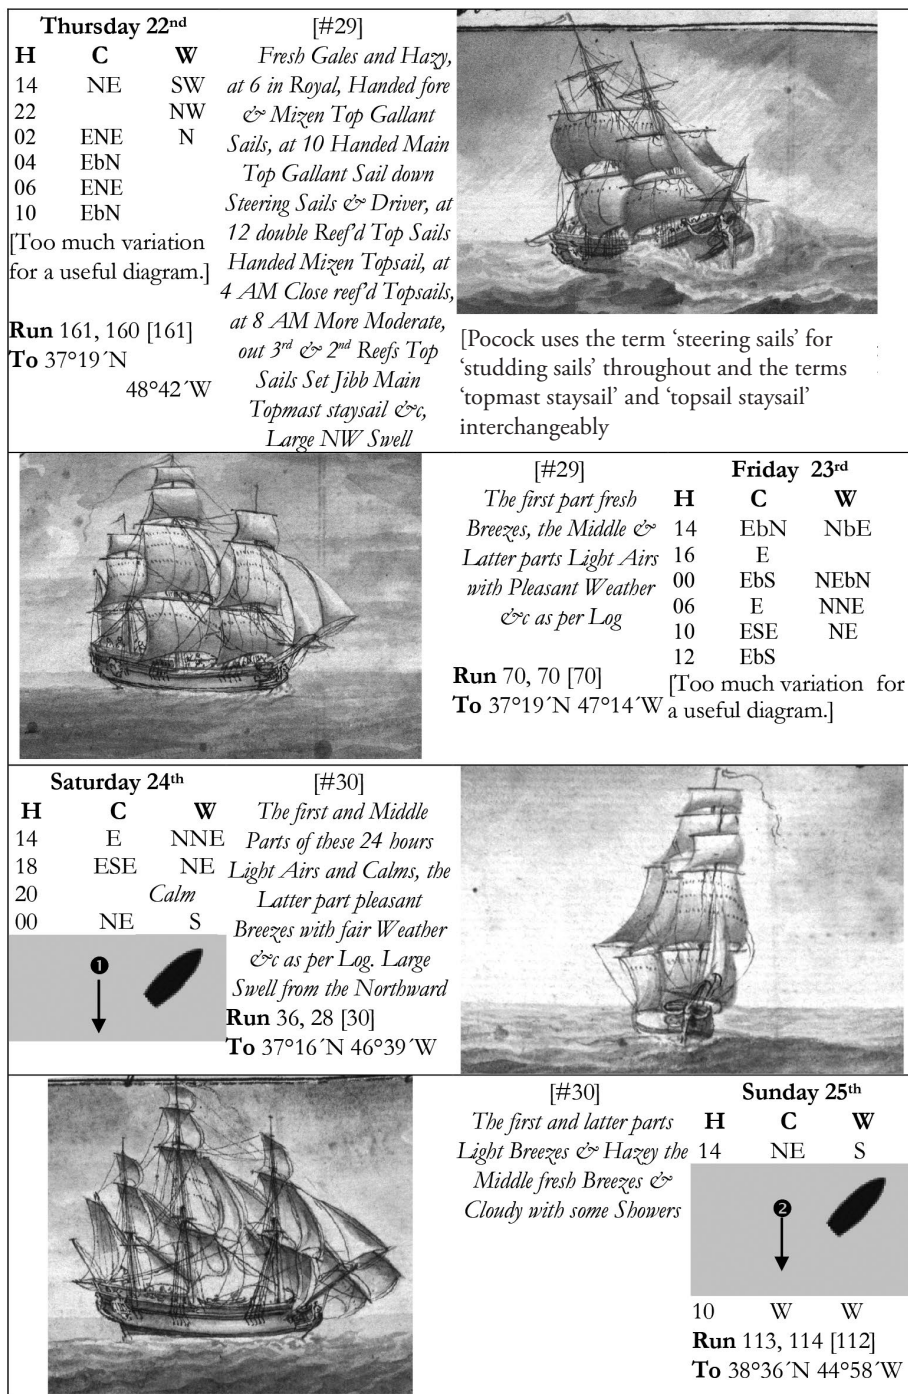 Thursday 22nd
H C W
14 NE SW
22 NW
02 ENE N
04 EbN
06 ENE
10 EbN
[Too much variation
for a useful diagram.]
Run 161, 160 [161]
To 37°19´N
48°42´W
[#29]
Fresh Gales and Hazy,
at 6 in Royal, Handed fore
& Mizen Top Gallant
Sails, at 10 Handed Main
Top Gallant Sail down
Steering Sails & Driver, at
12 double Reef'd Top Sails
Handed Mizen Topsail, at
4 AM Close reef'd Topsails,
at 8 AM More Moderate,
out 3rd & 2nd Reefs Top
Sails Set Jibb Main
Topmast staysail &c,
Large NW Swell
[Pocock uses the term ‘steering sails’ for
‘studding sails’ throughout and the terms
‘topmast staysail’ and ‘topsail staysail’
interchangeably
[#29]
The first part fresh
Breezes, the Middle &
Latter parts Light Airs
with Pleasant Weather
&c as per Log
Run 70, 70 [70]
To 37°19´N 47°14´W
Friday 23rd
H C W
14 EbN NbE
16 E
00 EbS NEbN
06 E NNE
10 ESE NE
12 EbS
[Too much variation for
a useful diagram.]
Saturday 24th
H C W
14 E NNE
18 ESE NE
20 Calm
00 NE S
❶
[#30]
The first and Middle
Parts of these 24 hours
Light Airs and Calms, the
Latter part pleasant
Breezes with fair Weather
&c as per Log. Large
Swell from the Northward
Run 36, 28 [30]
To 37°16´N 46°39´W
[#30]
The first and latter parts
Light Breezes & Hazey the
Middle fresh Breezes &
Cloudy with some Showers
Sunday 25th
H C W
14 NE S
❷
10 W W
Run 113, 114 [112]
To 38°36´N 44°58´W